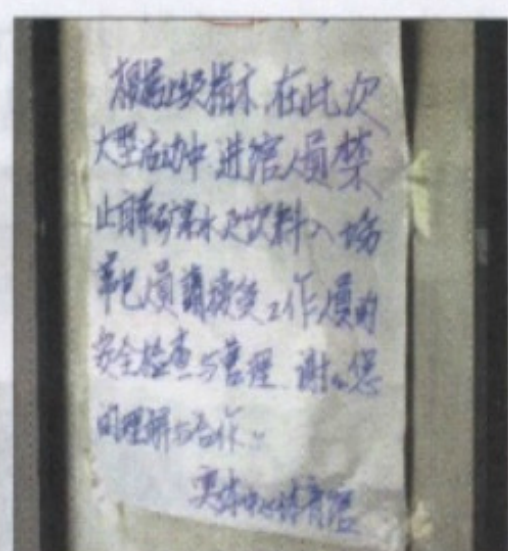 根据上级指示,在此次
大型活动中进馆人员禁
止自带矿泉水及饮料入场
员请接受工作人员的
安全检查与管理 谢谢您
的理解与合作!
中心体育馆